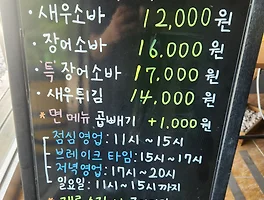 · 새우소바 12,000원
· 장어소바 16.000원
· 특 장어소바 17,000원
· 새우튀김 14,000원
* 면 메뉴 곱빼기 +1.000원
· 점심영업 : 11시 ~ 15시
· 브레이크 타임 : 15시 ~ 17시
· 저녁영업 : 17시 ~ 20시
일요일 : 11시 ~ 15시까지